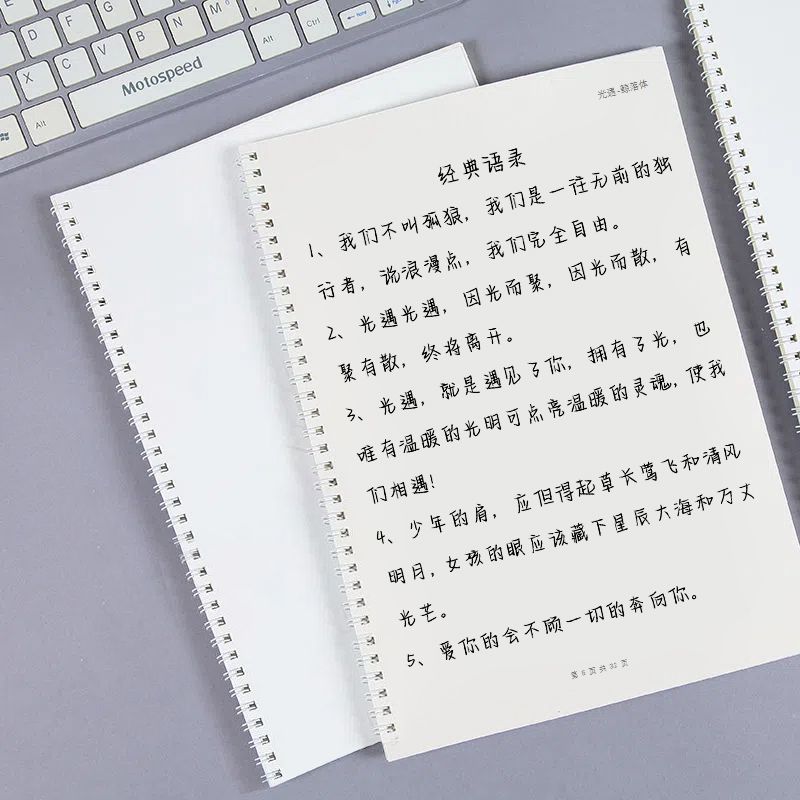 光遇-鲸落体
经典语录
1、我们不叫孤狼，我们是一往无前的独
行者，说浪漫点，我们完全自由。
2、光遇光遇，因光而聚，因光而散，有
聚有散，终将离开。
3、光遇，就是遇见了你，拥有了光，也
唯有温暖的光明可点亮温暖的灵魂，使我
们相遇！
4、少年的肩，应但得起草长莺飞和清风
明月，女孩的眼应该藏下星辰大海和万丈
光芒。
5、爱你的会不顾一切的奔向你。
第 6 页 共 32 页
Motospeed
Alt
Alt
Ctrl
Home
E
D
F
G
H
J
K
X
C
V
B
N
M